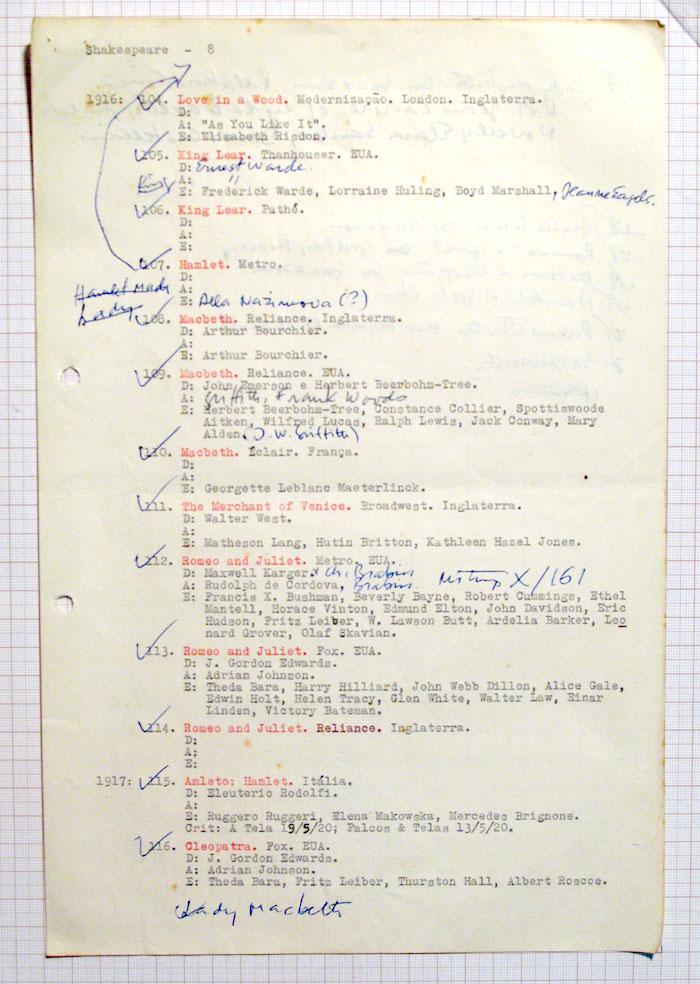 Shakespeare - 8
1916: 104. Love in a Wood. Modernização. London. Inglaterra.
D:
A: "As You Like It".
E: Elizabeth Risdon.
105. King Lear. Thanhouser. EUA.
D: Ernest Warde.
A: "
King
E: Frederick Warde, Lorraine Huling, Boyd Marshall, Jeanne Eagels.
106. King Lear. Pathé.
D:
A:
E:
107. Hamlet. Metro.
D:
Hamlet Made A:
Lady E: Alla Nazimova (?)
108. Macbeth. Reliance. Inglaterra.
D: Arthur Bourchier.
A:
E: Arthur Bourchier.
109. Macbeth. Reliance. EUA.
D: John Emerson e Herbert Beerbohm-Tree.
A: Griffith, Frank Woods
E: Herbert Beerbohm-Tree, Constance Collier, Spottiswoode
Aitken, Wilfred Lucas, Ralph Lewis, Jack Conway, Mary
Alden. (D. W. Griffith)
110. Macbeth. Éclair. França.
D:
A:
E: Georgette Leblanc Maeterlinck.
111. The Merchant of Venice. Broadwest. Inglaterra.
D: Walter West.
A:
E: Matheson Lang, Hutin Britton, Kathleen Hazel Jones.
112. Romeo and Juliet. Metro. EUA.
D: Maxwell Karger & Ch. Brabin
A: Rudolph de Cordova, Brabin. X/161
E: Francis X. Bushman, Beverly Bayne, Robert Cummings, Ethel
Mantell, Horace Vinton, Edmund Elton, John Davidson, Eric
Hudson, Fritz Leiber, W. Lawson Butt, Ardelia Barker, Leo
nard Grover, Olaf Skavian.
113. Romeo and Juliet. Fox. EUA.
D: J. Gordon Edwards.
A: Adrian Johnson.
E: Theda Bara, Harry Hilliard, John Webb Dillon, Alice Gale,
Edwin Holt, Helen Tracy, Glen White, Walter Law, Einar
Linden, Victory Bateman.
114. Romeo and Juliet. Reliance. Inglaterra.
D:
A:
E:
1917: 115. Amleto: Hamlet. Itália.
D: Eleuterio Rodolfi.
A:
E: Ruggero Ruggeri, Elena Makowska, Mercedes Brignone.
Crit: A Tela 19/5/20; Palcos & Telas 13/5/20.
116. Cleopatra. Fox. EUA.
D: J. Gordon Edwards.
A: Adrian Johnson.
E: Theda Bara, Fritz Leiber, Thurston Hall, Albert Roscoe.
Lady Macbeth